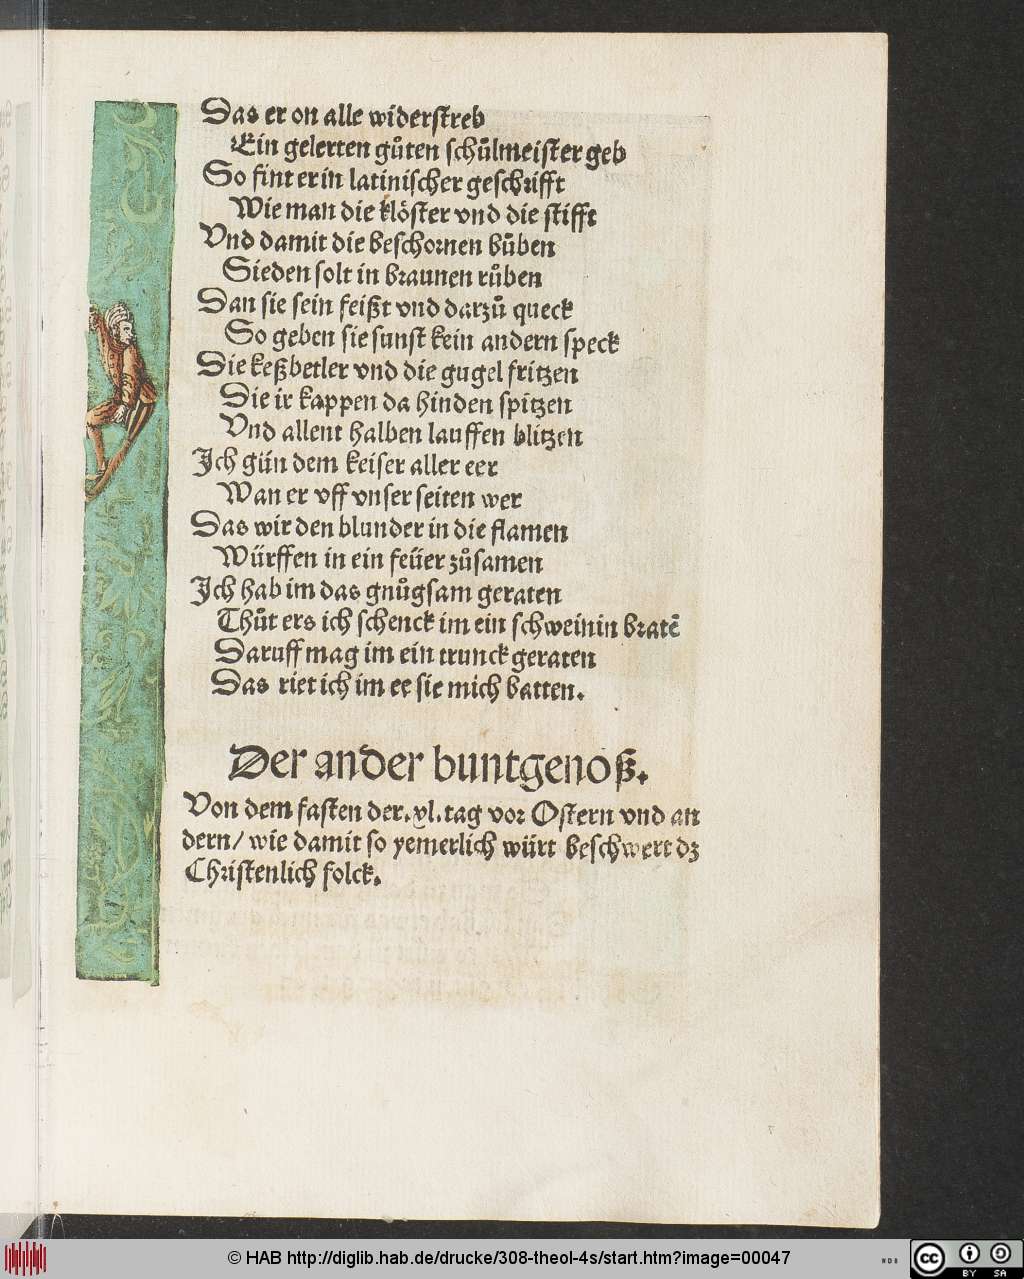 Das er on alle widerstreb
Ein gelerten gůten schůlmeister geb
So fint er in latinischer geschrifft
Wie man die klöster vnd die stifft
Vnd damit die beschornen bůben
Sieden solt in braunen růben
Dan sie sein feißt vnd darzů queck
So geben sie sunst kein andern speck
Die keßbetler vnd die gugel fritzen
Die ir kappen da hinden spitzen
Vnd allent halben lauffen blitzen
Ich gün dem keiser aller eer
Wan er vff vnser seiten wer
Das wir den blunder in die flamen
Würffen in ein feüer zůsamen
Ich hab im das gnůgsam geraten
Thůt ers ich schenck im ein schweinin bratē
Daruff mag im ein trunck geraten
Das riet ich im ee sie mich batten.
Der ander buntgenoß.
Von dem fasten der.xl.tag vor Ostern vnd an
dern/ wie damit so yemerlich würt beschwert dz
Christenlich folck.
© HAB http://diglib.hab.de/drucke/308-theol-4s/start.htm?image=00047
WDB
cc
BY SA